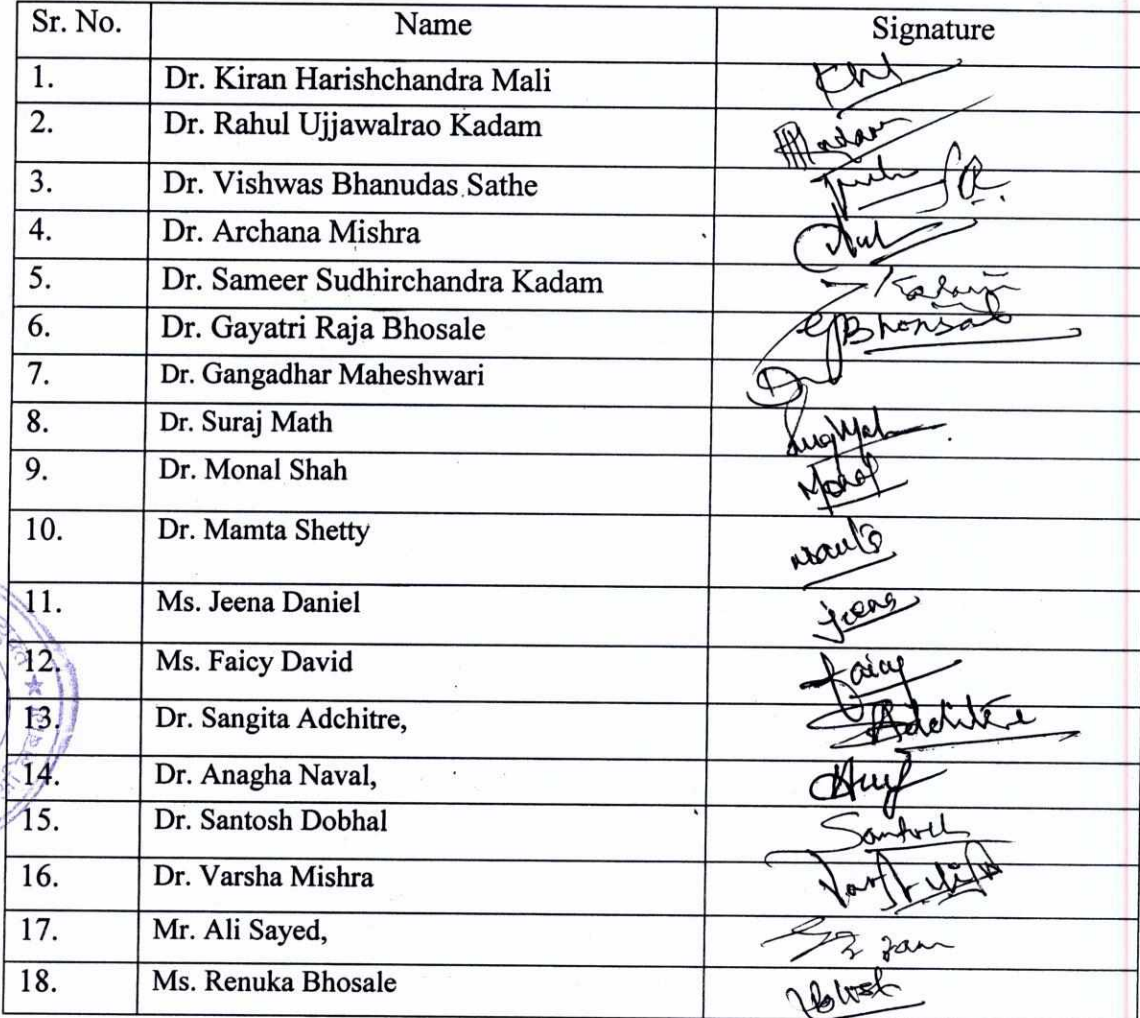 Sr. No. Name Signature
1. Dr. Kiran Harishchandra Mali
2. Dr. Rahul Ujjawalrao Kadam
3. Dr. Vishwas Bhanudas Sathe
4. Dr. Archana Mishra
5. Dr. Sameer Sudhirchandra Kadam
6. Dr. Gayatri Raja Bhosale GBhonsale
7. Dr. Gangadhar Maheshwari
8. Dr. Suraj Math
9. Dr. Monal Shah Monal
10. Dr. Mamta Shetty
11. Ms. Jeena Daniel Jeena
12. Ms. Faicy David Faicy
13. Dr. Sangita Adchitre, Adchitre
14. Dr. Anagha Naval,
15. Dr. Santosh Dobhal
16. Dr. Varsha Mishra
17. Mr. Ali Sayed,
18. Ms. Renuka Bhosale